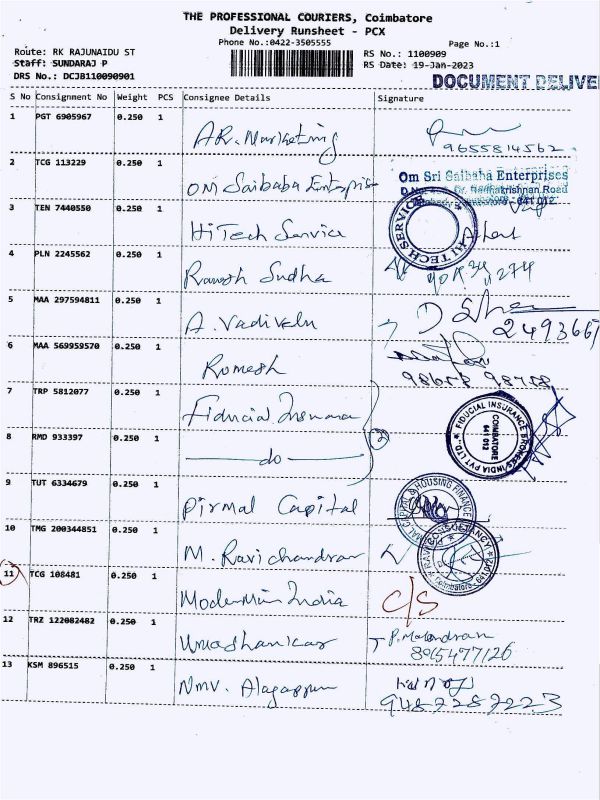 THE PROFESSIONAL COURIERS, Coimbatore
Delivery Runsheet - PCX
Phone No.:0422-3505555
Page No.:1
Route: RK RAJUNAIDU ST
RS No.: 1100909
Staff: SUNDARAJ P
RS Date: 19-Jan-2023
DRS No.: DCJB110090901
DOCUMENT DELIVE
S No Consignment No Weight PCS Consignee Details Signature
1 PGT 6905967 0.250 1 AR. Marketing
9655814562
2 TCG 113229 0.250 1 OM Saibaba Enterprise
Om Sri Saibaba Enterprises
Dr. Radhakrishnan Road
641 012
3 TEN 7440550 0.250 1 HiTech Service
HI TECH SERVICE
4 PLN 2245562 0.250 1 Ramesh Sudha
5 MAA 297594811 0.250 1 A. Vadivelu
2493661
6 MAA 569959570 0.250 1 Romesh
98658 98758
7 TRP 5812077 0.250 1 Fiducial Insurance
FIDUCIAL INSURANCE BROKERS INDIA PVT LTD.
COIMBATORE
641 012
8 RMD 933397 0.250 1 do
2
9 TUT 6334679 0.250 1 Pirmal Capital
CAPITAL & HOUSING FINANCE
10 TMG 200344851 0.250 1 M. Ravichandran
RAVI CONSULTANCY
Coimbatore - 641 012
11 TCG 108481 0.250 1 ModernMin India
C/S
12 TRZ 122082482 0.250 1 Umashankar
8015477126
13 KSM 896515 0.250 1 NMV. Alagappan
9487287223